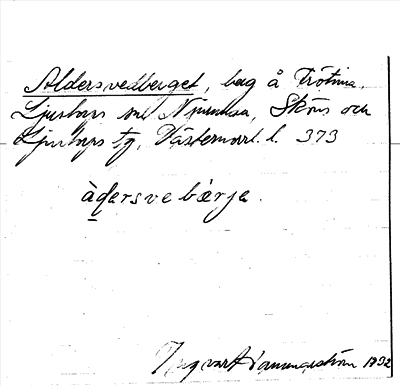 Aldersvedberget, berg å Trötma,
Ljustorps om Njurunda, Sköns och
Ljustorps tg, Västernorrl. l. 373
àdersve bærje.
Yngvar Hammarström 1932